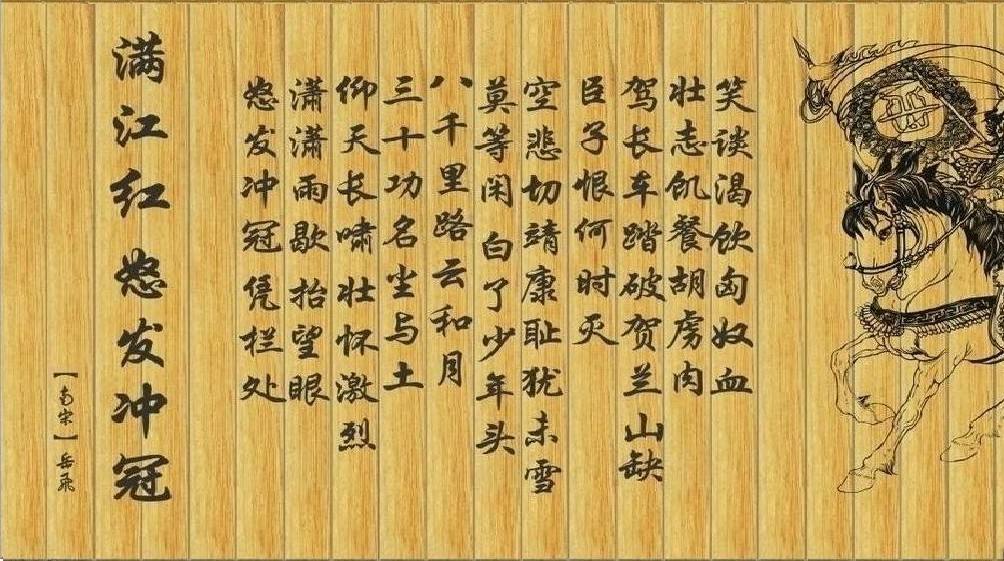 满江红 怒发冲冠
【南宋】岳飞
怒发冲冠凭栏处
潇潇雨歇抬望眼
仰天长啸壮怀激烈
三十功名尘与土
八千里路云和月
莫等闲 白了少年头
空悲切靖康耻犹未雪
臣子恨何时灭
驾长车踏破贺兰山缺
壮志饥餐胡虏肉
笑谈渴饮匈奴血